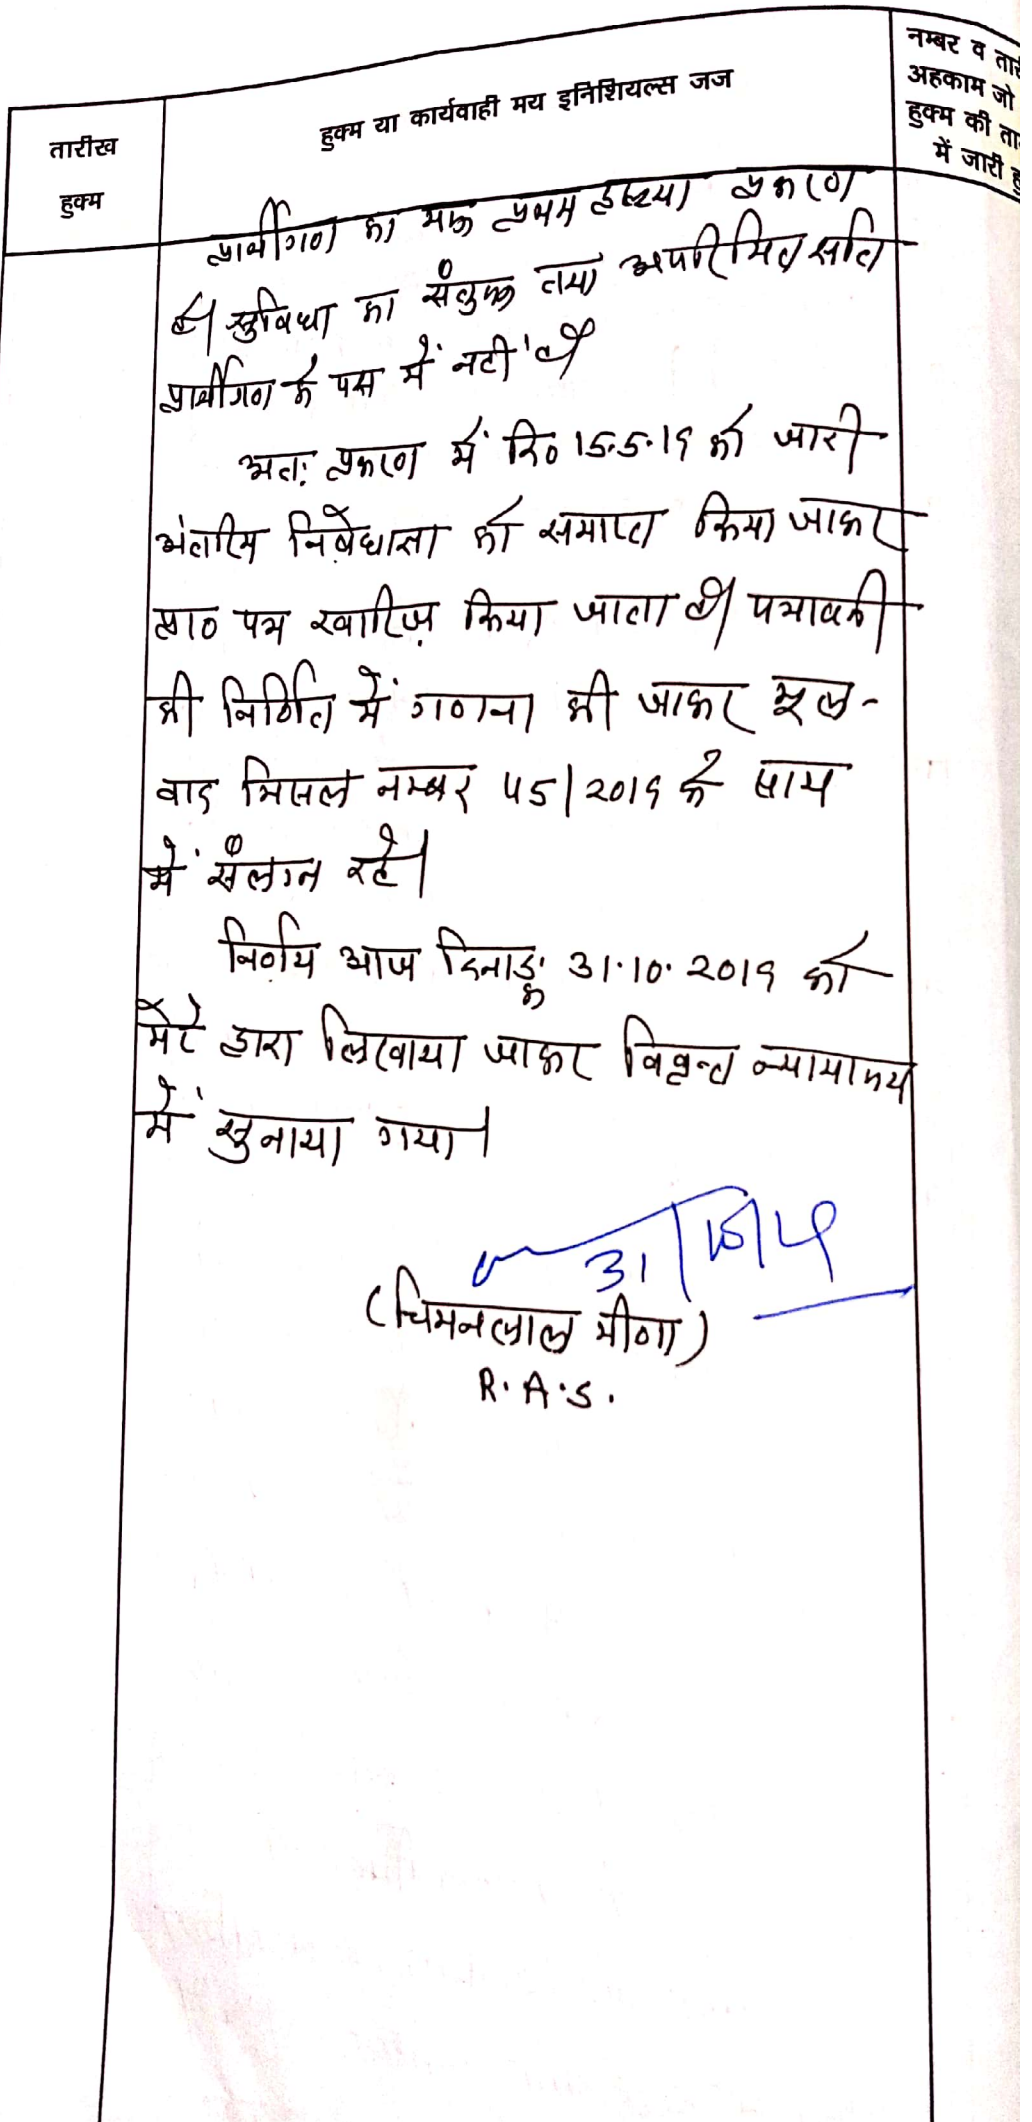 तारीख
हुक्म
हुक्म या कार्यवाही मय इनिशियल्स जज
नम्बर व
अहकाम जो
हुक्म की
में जारी
प्रार्थीगण का प्रथम दृष्टया प्रकरण
है। सुविधा का संतुलन तथा अपरिमित क्षति
प्रार्थीगण के पक्ष में नहीं है
अतः प्रकरण में दि० 15.5.19 को जारी
अंतरिम निषेधाज्ञा को समाप्त किया जाकर
प्रा० पत्र खारिज़ किया जाता है। पत्रावली
की निर्णित में गणना की जाकर मूल-
वाद मिसल नम्बर 45/2019 के साथ
में संलग्न रहे।
निर्णय आज दिनाङ्क 31.10.2019 को
मेरे द्वारा लिखवाया जाकर विवृन्त न्यायालय
में सुनाया गया।
31/10/19
(चिमनलाल मीणा)
R.A.S.